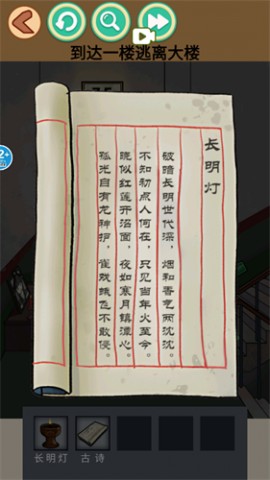 到达一楼逃离大楼
长明灯
破暗长明世代深，烟和香气两沉沉。
不知初点人何在，只见当年火至今。
晓似红莲开沼面，夜如寒月镇潭心。
孤光自有龙神护，雀戏蛾飞不敢侵。
长明灯
古诗